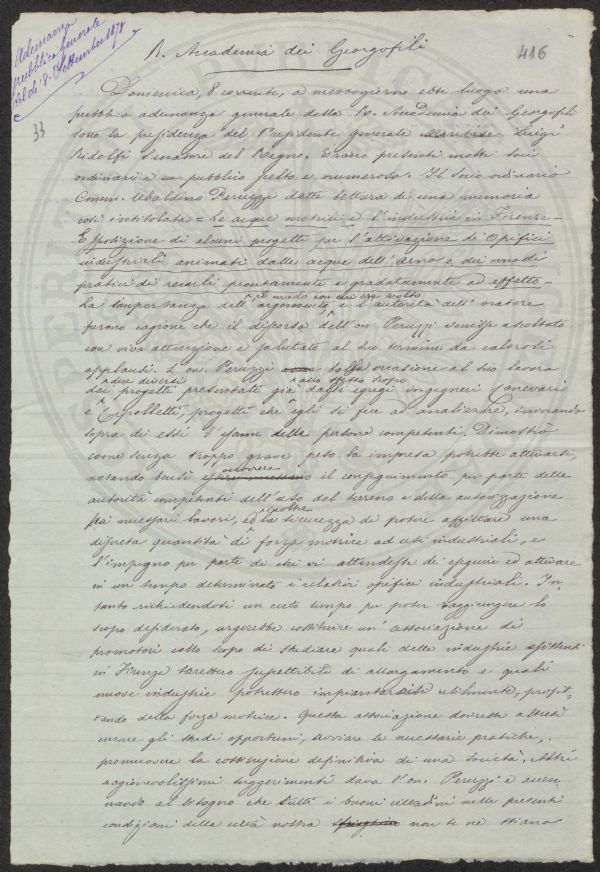 Adunanza
pubblica generale
del dì 8. Settembre 1878
R. Accademia dei Georgofili
416
33
Domenica, 8 corrente, a mezzogiorno ebbe luogo una
pubblica adunanza generale della R. Accademia dei Georgofili
sotto la presidenza del Presidente generale Marchese Luigi
Ridolfi Senatore del Regno. Erano presenti molti Soci
ordinari e un pubblico scelto e numeroso. Il Socio ordinario
Comm. Ubaldino Peruzzi dette lettura di una memoria
così intitolata = Le acque motrici e l'industria in Firenze -
Esposizione di alcuni progetti per l'attivazione di Opifici
industriali animati dalle acque dell'Arno e dei modi
pratici di recarli prontamente e gradatamente ad effetto -
il modo con cui era svolto
La importanza dell'argomento, e l'autorità dell'oratore
furono cagione che il discorso dell'on. Peruzzi venisse ascoltato
con viva attenzione e salutato al suo termine da calorosi
applausi. L'on. Peruzzi tolse occasione al suo lavoro
due diversi allo stesso scopo
dai progetti presentati già dagli egregi ingegneri Canevari
e Cipolletti, progetti che egli si fece ad analizzare, invocando
sopra di essi l'esame delle persone competenti. Dimostrò
come senza troppo grave peso la impresa potrebbe attuarsi,
occorrere
notando però il conseguimento per parte delle
autorità competenti dell'uso del terreno e della autorizzazione
inoltre
ai necessari lavori, e la sicurezza di potere affittare una
discreta quantità di forza motrice ad usi industriali, e
l'impegno per parte di chi vi attendesse di eseguire ed attivare
in un tempo determinato i relativi opifici industriali. In-
tanto richiedendosi un certo tempo per poter raggiungere lo
scopo desiderato, urgerebbe costituire un'associazione di
promotori collo scopo di studiare quali delle industrie esistenti
in Firenze sarebbero suscettibili di allargamento e quali
nuove industrie potrebbero impiantarsi utilmente, profit-
tando della forza motrice. Questa associazione dovrebbe altresì
curare gli studi opportuni, avviare le necessarie pratiche,
promuovere la costituzione definitiva di una società. Altri
ragionevolissimi suggerimenti dava l'on. Peruzzi e accen-
nando al bisogno che tutti i buoni cittadini nelle presenti
condizioni della città nostra non se ne stiano